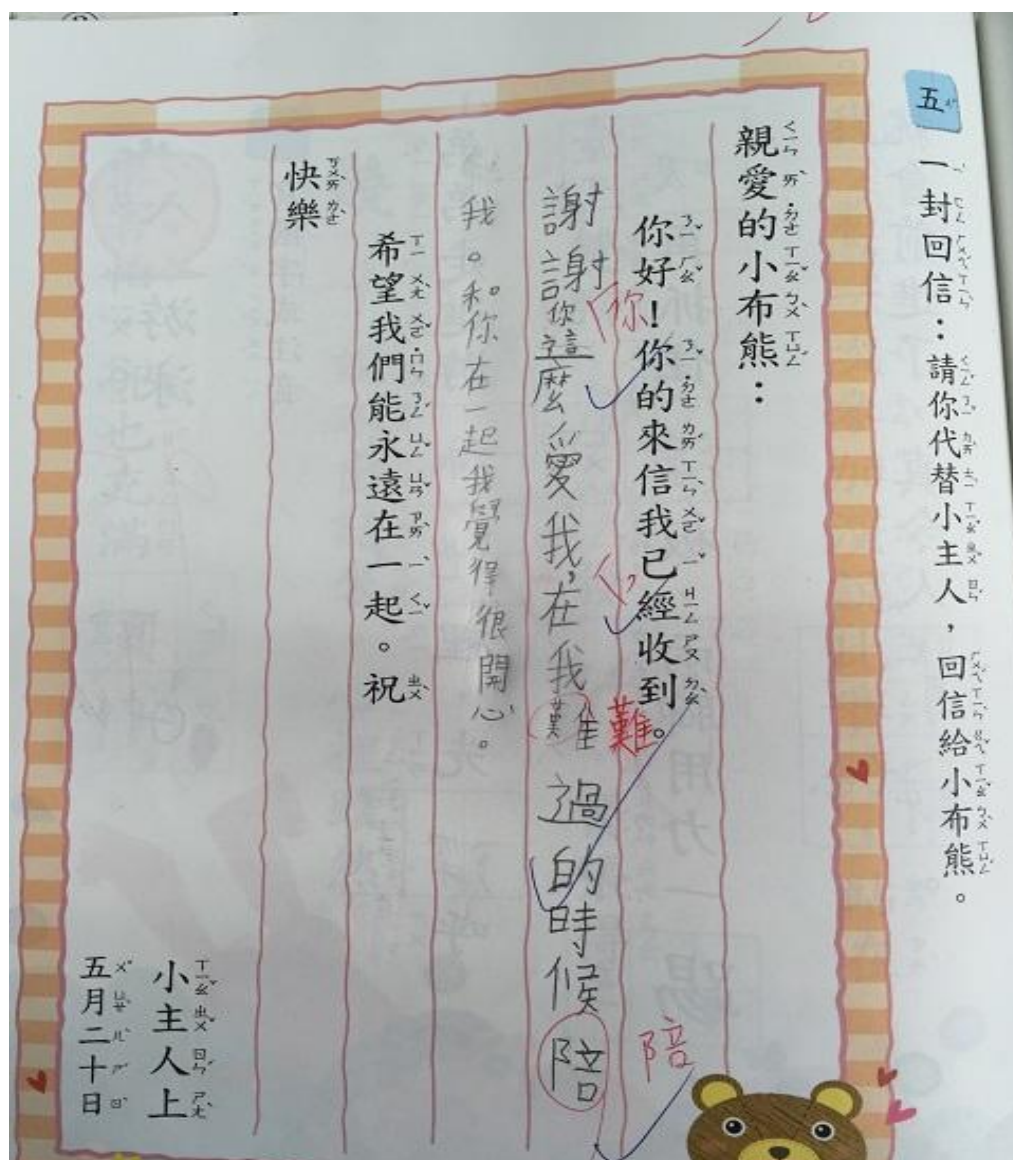 五 一封回信：請你代替小主人，回信給小布熊。
親愛的小布熊：
你好！你的來信我已經收到。
你
難
陪
謝謝你這麼愛我，在我難過的時候陪
我。和你在一起我覺得很開心。
希望我們能永遠在一起。祝
快樂
小主人上
五月二十日